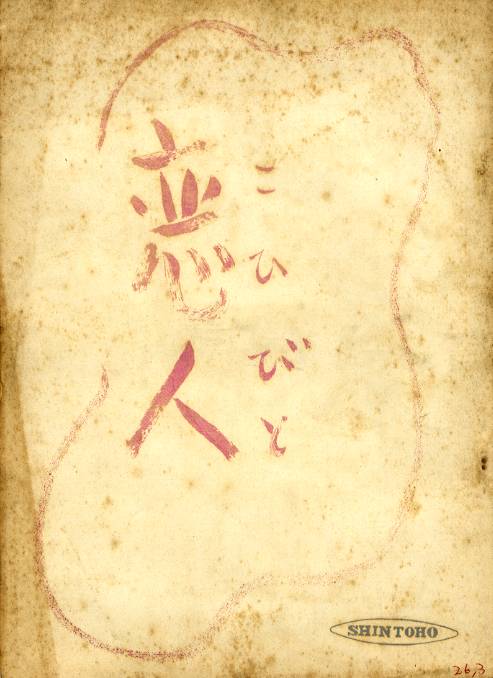 恋人
こひびと
SHINTOHO
26,3